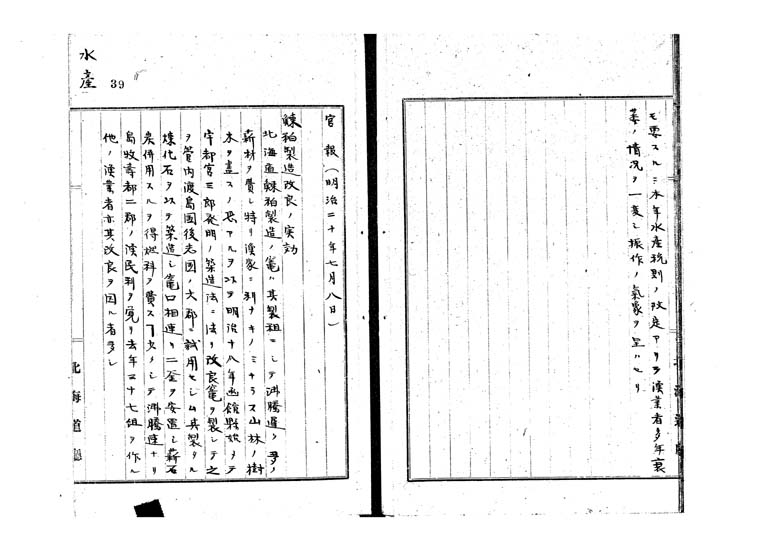 モ要スルニ本年水産税則ノ改定アリテ漁業者多年衰
萎ノ情況ヲ一変シ振作ノ氣象ヲ呈ハセリ
水産
39
官報(明治二十年七月八日)
鰊粕製造改良ノ実効
北海道鰊粕製造ノ竈ハ其製粗ニシテ沸騰遅ク多ノ
薪材ヲ費シ特リ漁家ニ利ナキノミナラス山林ノ樹
木ヲ盡スノ患アルヲ以テ明治十八年函館縣故ヲテ
宇都宮三郎発明ノ築造法ニ法リ改良竈ヲ製シテ之
ヲ管内渡島國後志國ノ大郡ニ試用セシム其製タル
煉化石ヲ以テ築造シ竈口相連リ二釜ヲ安置シ薪石
炭併用スルヲ得燃料ヲ費ス少クシテ沸騰速ナリ
島牧壽都二郡ノ漁民利ヲ覚リ去年三十七組ヲ作ル
他ノ漁業者亦其改良ヲ図ル者多シ
北海道廳